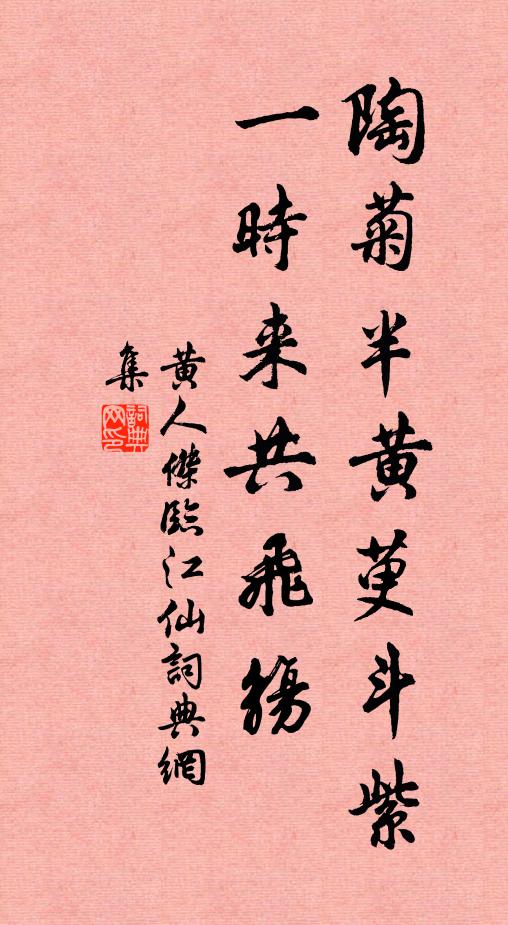 陶菊半黄萸斗紫
一時来共飛觴
黄人傑臨江仙詞典網
集
詞典
网印